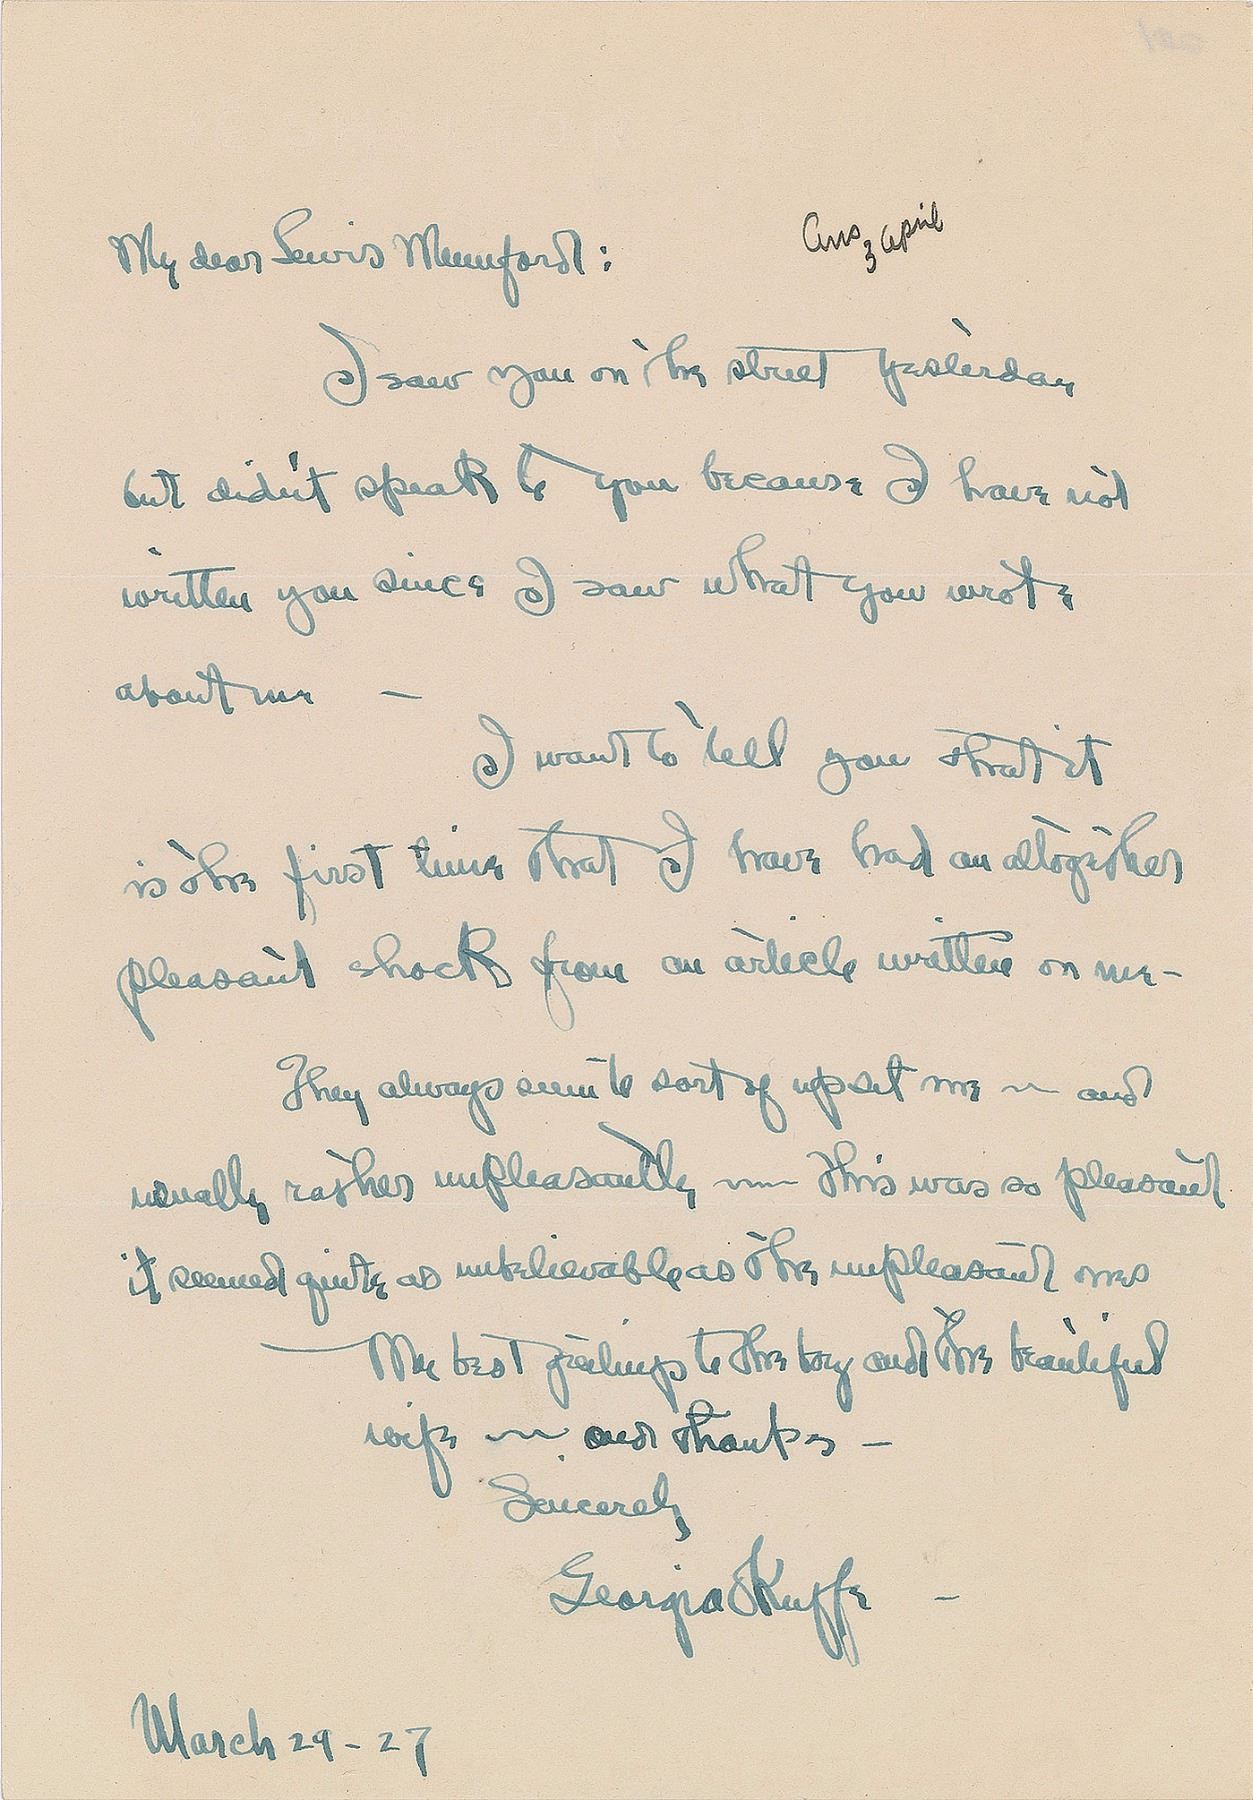 My dear Lewis Mumford:
Ans 3 april
I saw you on the street yesterday
but didn't speak to you because I have not
written you since I saw what you wrote
about me —
I want to tell you that it
is the first time that I have had an altogether
pleasant shock from an article written on me—
They always seem to sort of upset me ~ and
usually rather unpleasantly ~ This was so pleasant
it seemed quite as unbelievable as the unpleasant ones
— My best greetings to the boy and the beautiful
wife ~ and thanks —
Sincerely
Georgia OKeeffe —
March 29 - 27